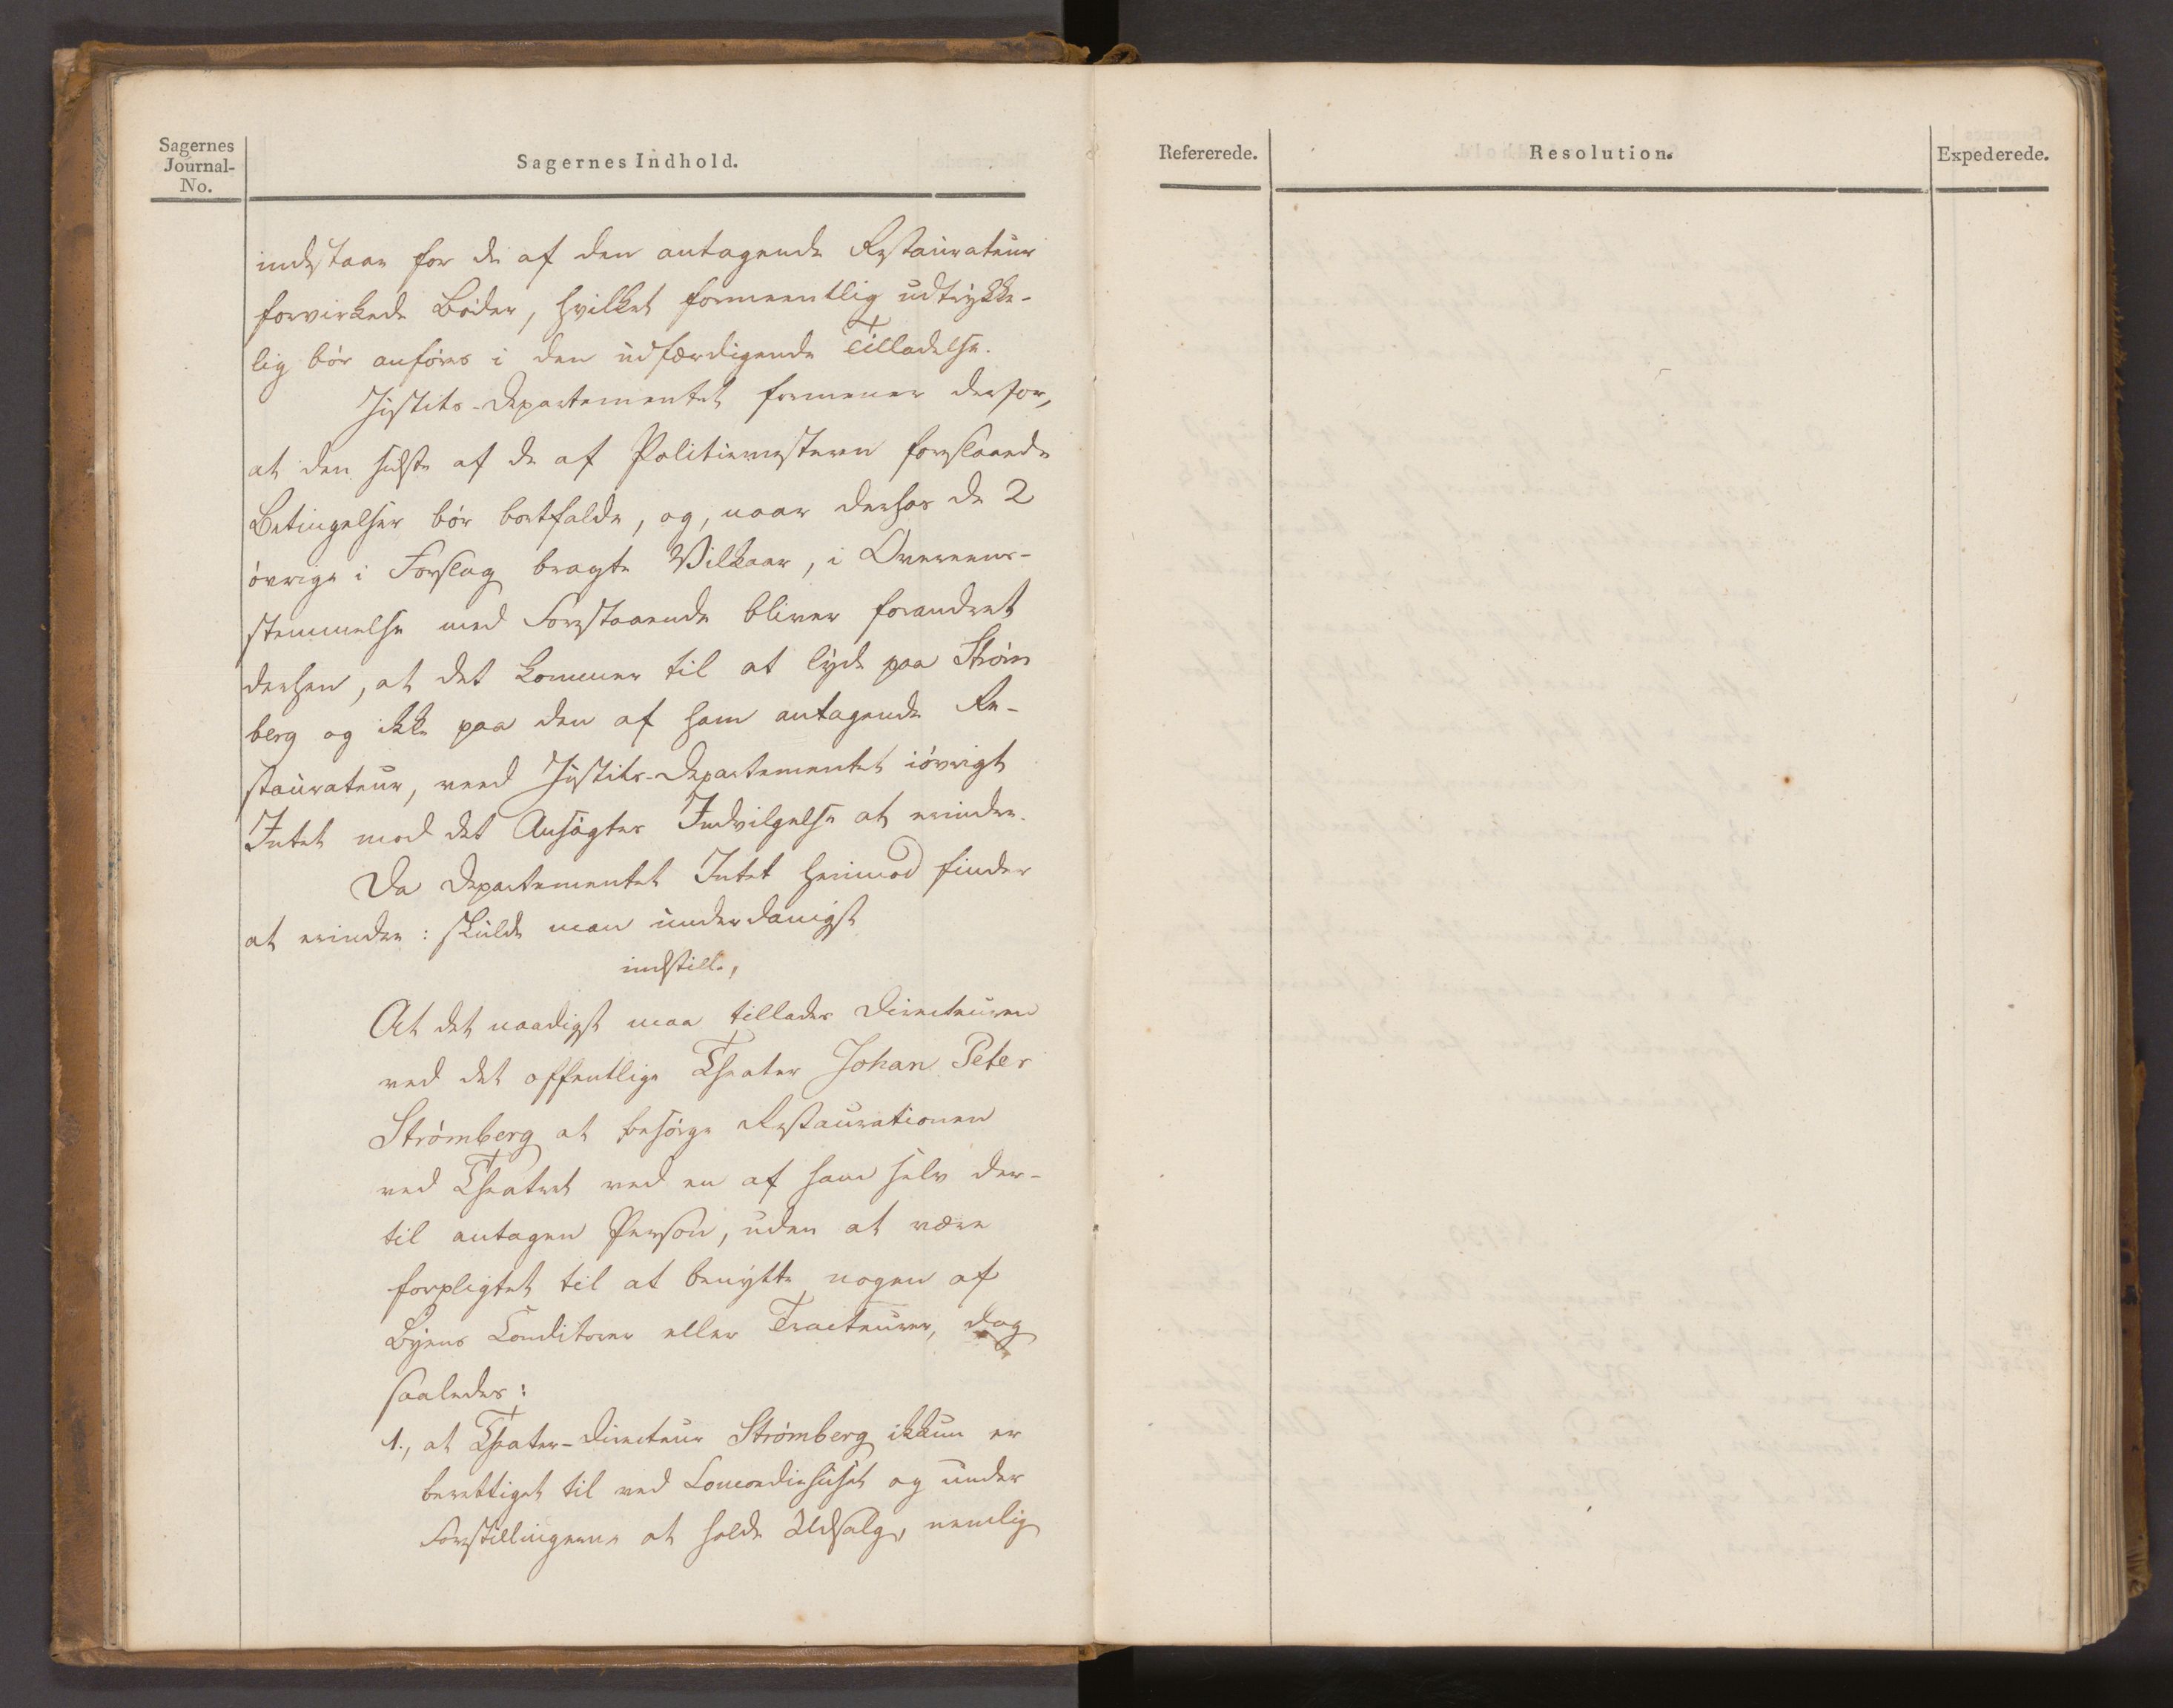 Sagernes
Journal-
No.
Sagernes Indhold.
Refererede.
Resolution.
Expederede.
indestaae for de af den antagende Restaurateur
forvirkede Böder, hvilket formeentlig udtrykke-
lig bör anföres i den udfærdigende Tilladelse.
Justits-Departementet formener derfor,
at den sidste af de af Politiemesteren foreslaaede
Betingelser bör bortfalde, og, naar derhos de 2
övrige i Forslag bragte Vilkaar, i Overeens-
stemmelse med Forestaaende bliver forandret
derhen, at det kommer til at lyde paa Ström
berg og ikke paa den af ham antagende Re-
staurateur, veed Justits-Departementet iövrigt
Intet mod det Ansögtes Indvilgelse at erindre.
Da Departementet Intet herimod finder
at erindre: skulde man underdanigst
indstille,
At det naadigst maa tillades Directeuren
ved det offentlige Theater Johan Peter
Strömberg at besörge Restaurationen
ved Theatret ved en af ham selv der-
til antagen Person, uden at være
forpligtet til at benytte nogen af
Byens Conditorer eller Tracteurer, dog
saaledes:
1., at Theater-Directeur Strömberg ikkun er
berettiget til ved Comoediehuset og under
Forestillingerne at holde Udsalg, nemlig